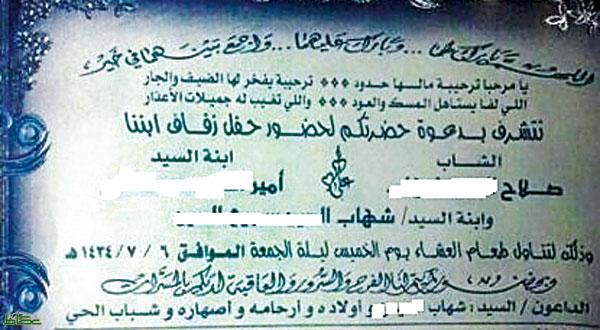 اللهم بارك لهما ... وبارك عليهما ... واجمع بينهما في خير
يا مرحبا ترحيبة مالها حدود *** ترحيبة يفخر لها الضيف والجار
اللي لفا يستاهل المسك والعود *** واللي تغيب له جميلات الأعذار
نتشرف بدعوة حضرتكم لحضور حفل زفاف ابننا
الشاب ابنة السيد
صلاح أمير
وابنة السيد/ شهاب
وذلك لتناول طعام العشاء يوم الخميس ليلة الجمعة الموافق ٦ / ٧ / ١٤٣٤ هـ
وبحضوركم يتم لنا الفرح والسرور والعاقبة لديكم بالمسرات
الداعون / السيد: شهاب و أولاده و أرحامه و أصهاره و شباب الحي